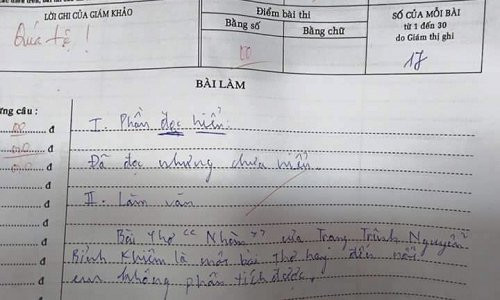 LỜI GHI CỦA GIÁM KHẢO
Quá tệ!
Điểm bài thi
Bằng số
Bằng chữ
00
SỐ CỦA MỖI BÀI
từ 1 đến 30
do Giám thị ghi
17
BÀI LÀM
ừng câu :
đ
đ
đ
đ
đ
đ
đ
đ
I. Phần đọc hiểu:
Đã đọc nhưng chưa hiểu.
II. Làm văn
Bài thơ "Nhàn" của Trạng Trình Nguyễn
Bỉnh Khiêm là một bài thơ hay đến nỗi
em không phân tích được.